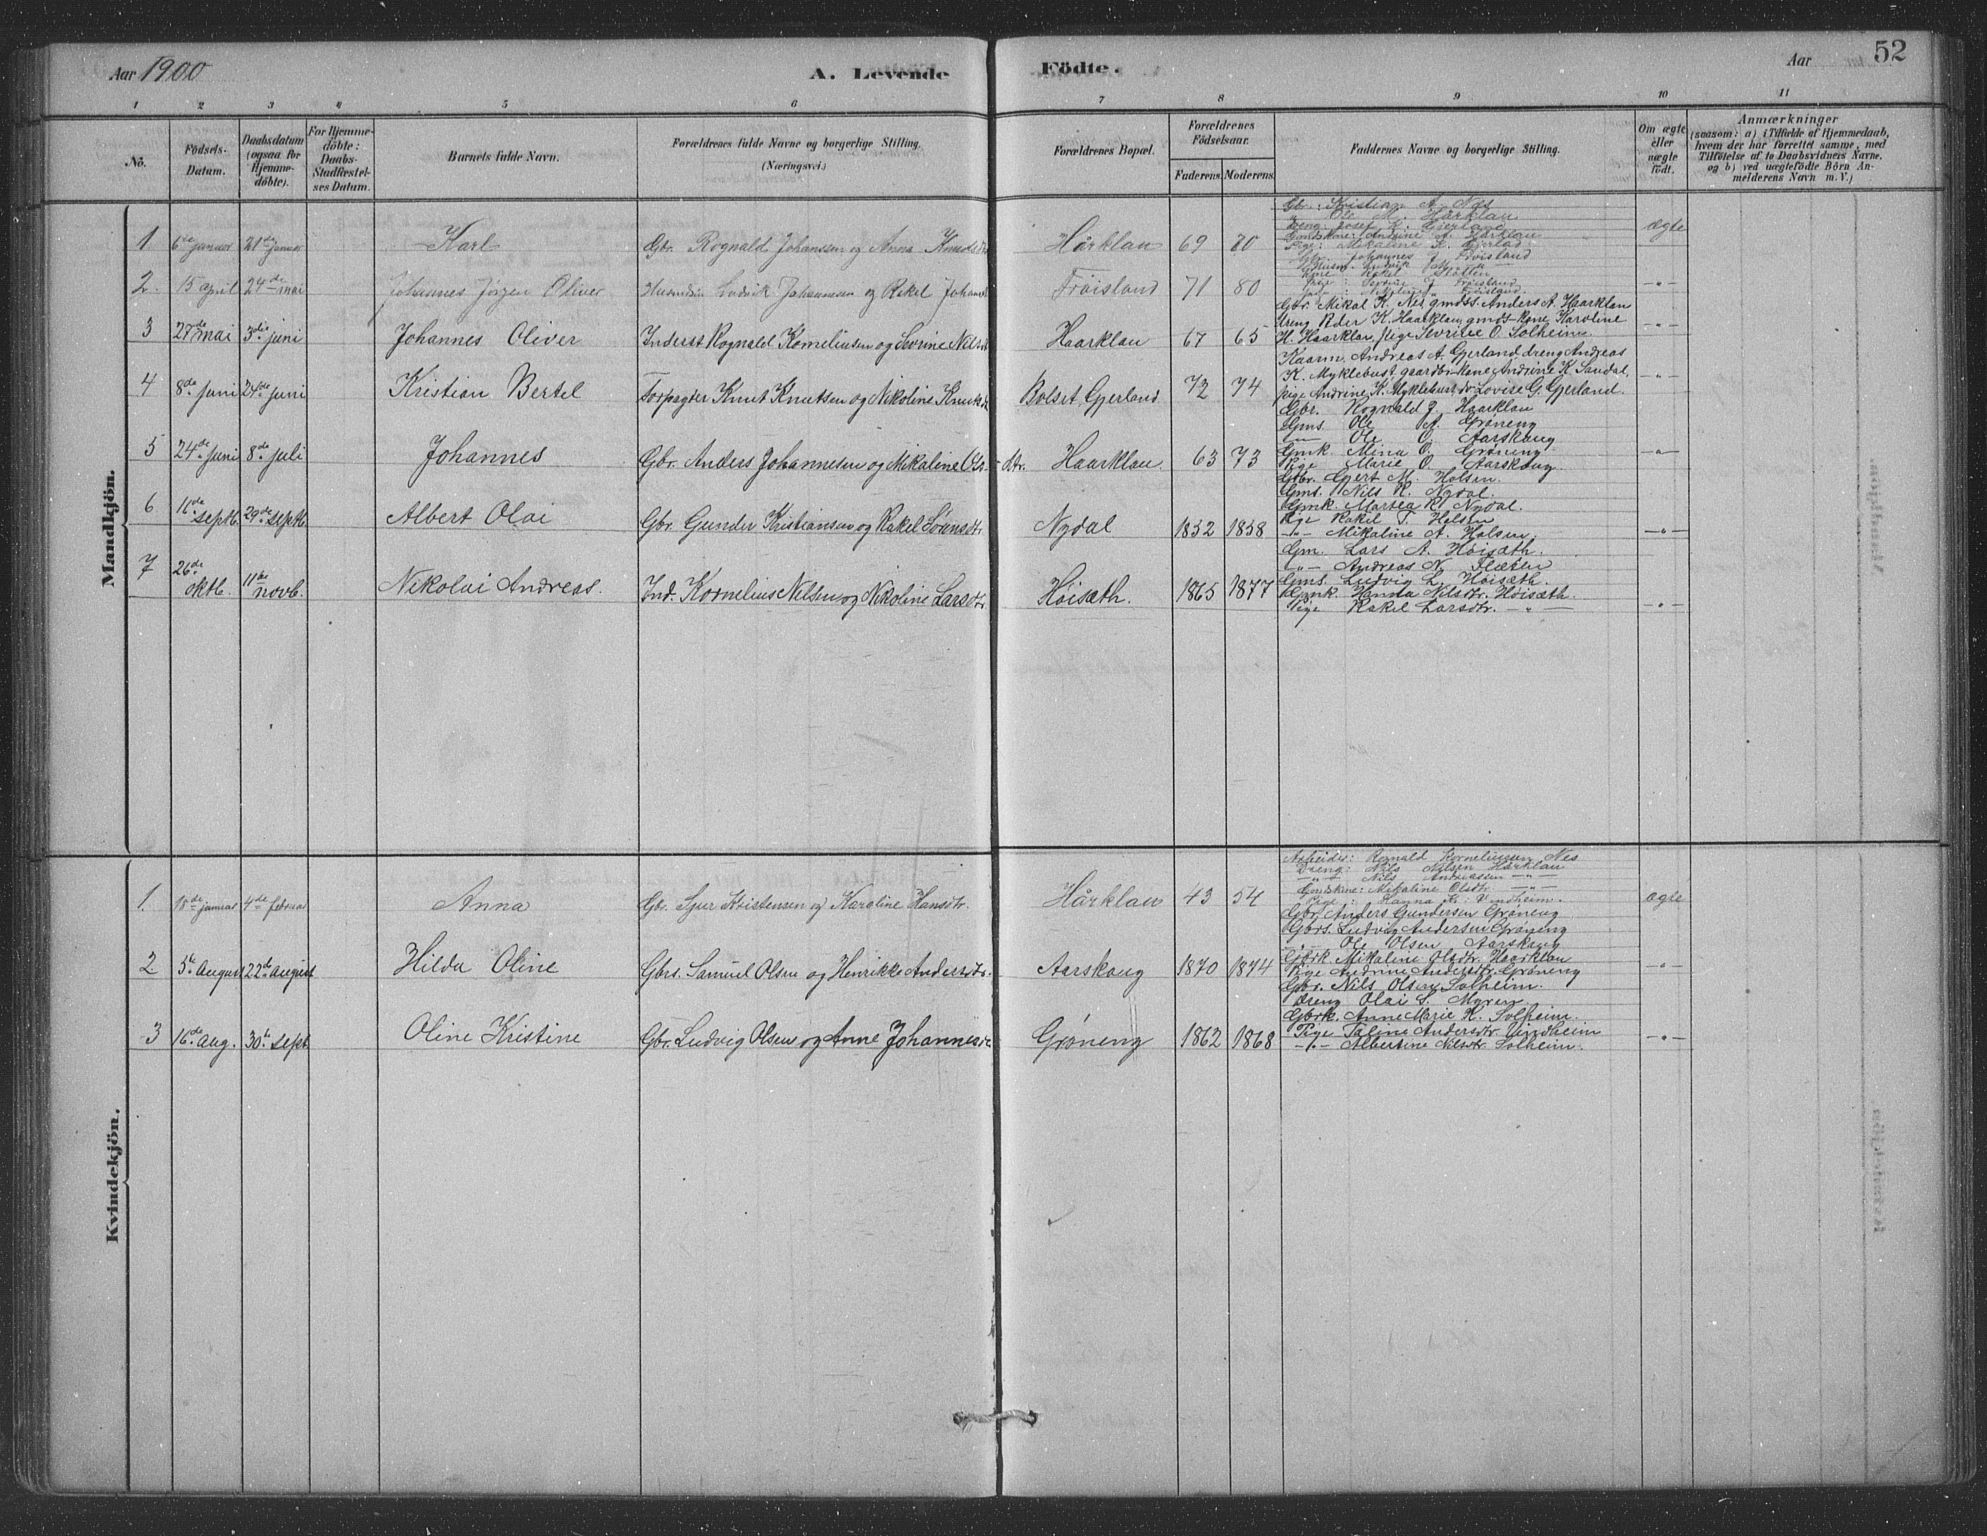 Aar 1900
A. Levende Födte.
Aar
52
1 2 3 4 5 6 7 8 9 10 11
No.
Födsels-Datum.
Daabsdatum (ogsaa for Hjemmedöbte).
For Hjemmedöbte: Daabs-Stadfæstelses Datum.
Barnets fulde Navn.
Forældrenes fulde Navne og borgerlige Stilling. (Næringsvei.)
Forældrenes Bopæl.
Forældrenes Födselsaar.
Faderens. Moderens.
Faddernes Navne og borgerlige Stilling.
Om ægte eller uægte födt.
Anmærkninger
(saasom: a) i Tilfælde af Hjemmedaab, hvem der har forrettet samme, med Tilföielse af to Daabsvidners Navne, og b) ved uægtefödte Börn Anmelderens Navn m. V.)
Mandkjön.
1 6te januar 21de januar Karl Gbr. Rognald Johansen og Anna Knudsdtr Hårklau 69 70 ægte
Gbr.: Kristian A. Nes
" Ole M. Hårklau
Dreng: Josef K. Gjerland
Gmdskone: Andrine A. Hårklau
Pige: Mikaline K. Gjerland
2. 15 april 24de mai Johannes Jörgen Oliver Ludvik Johannsen og Rakel Johans Fröisland 71 80 -"-
Gbr. Johannes J. Fröisland
3 27de mai 3die juni Johannes Oliver Inderst Rognald Korneliusen og Sevrine Nilsdt Haarklau 67 65 -"-
Gbr. Mikal K. Nes gmds. Anders A. Haarklau
dreng Peder K. Haarklau, gmds kone Karoline
H. Haarklau, pige Sevrine O. Solheim
4 8de juni 24de juni Kristian Bertel Forpagter Knut Knutsen og Nikoline Knutsd Bolset Gjerland 72 74 -"-
Kaarm. Andreas A. Gjerland dreng Andreas
K. Myklebust gaardbr. kone Andrine K. Sandal,
pige Andrine K. Myklebust do Lovise G. Gjerland.
5 24de juni 8de juli Johannes Gbr. Anders Johannesen og Mikaline Ols- dtr. Haarklau 63 73 -"-
Gbr. Rognald J. Haarklau
Gms. Ole A. Grøneng
-"- Ole O. Aarskaug
Gmk. Mina O. Grøneng
Pige Marie O. Aarskaug
6 16de septb. 29de septb. Albert Olai Gbr. Gunder Kristiansen og Rakel Sörensdtr. Nydal 1852 1858 -"-
Gbr. Gjert M. Holsen.
Gms. Nils R. Nydal.
Gmk. Martea R. Nydal.
Pige Rakel T. Holsen
-"- Mikaline A. Holsen.
7 26de oktb. 11te novb. Nikolai Andreas. Ind. Kornelius Nilsen og Nikoline Larsdtr Høisæth. 1865 1877 -"-
Gm. Lars A. Høisæth.
-"- Andreas N. Flaten
Gms. Ludvig L. Høisæth.
Gmk. Hanna Nilsdtr. Høisæth.
Pige Rakel Larsdtr. -"-
Kvindekjön.
1. 18de januar 4de februar Anna Gbr. Sjur Kristensen og Karoline Hansdtr. Hårklau 43 54 ægte
Arbeider: Rognald Korneliussen Nes
Dreng: Nils Nilsen Hårklau
-"- Nils Andreassen -"-
Gmdskne: Mikaline Olsdtr. -"-
Pige: Hanna Vindheim.
2 5te August 22de August Hilda Oline Gbrs. Samuel Olsen og Henrikke Andersdtr. Aarskaug 1870 1874 -"-
Gbr. Anders Gundersen Grøneng
Gbrs. Ludvig Andersen Grøneng
-"- Ole Olsen Aarskaug
Gbrk. Mikaline Olsdtr. Haarklau
Pige Andrine Andersdtr. Grøneng
3 16de Aug. 30te Sept. Oline Kristine Gbr. Ludvig Olsen og Anne Johannesd Grøneng 1862 1868 -"-
Gbr. Nils Olsen Solheim.
Dreng Olai S. Myren.
Gbrk. Anne Marie K. Solheim.
Pige Taline Andersdtr. Vindheim
-"- Albertine Nilsdtr. Solheim.